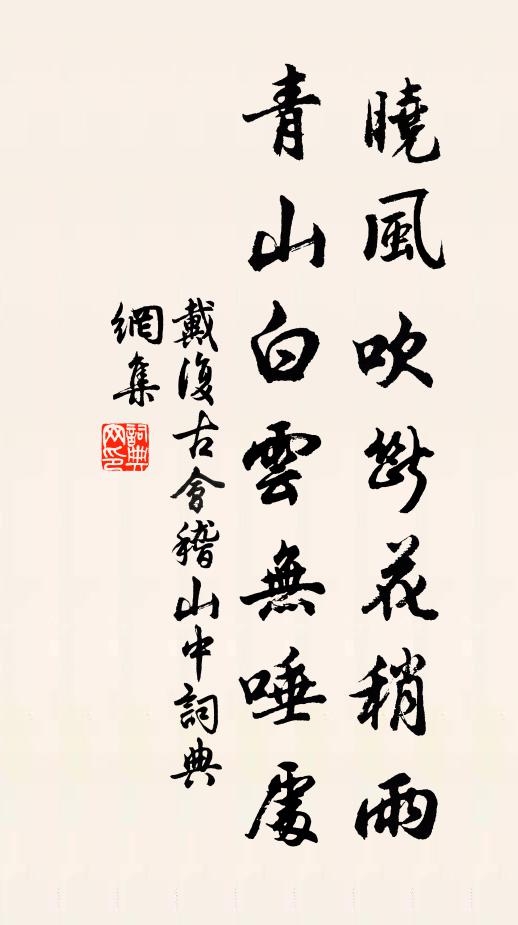 曉風吹斷花稍雨
青山白雲無唾處
戴復古會稽山中詞典
網集
詞典
网印